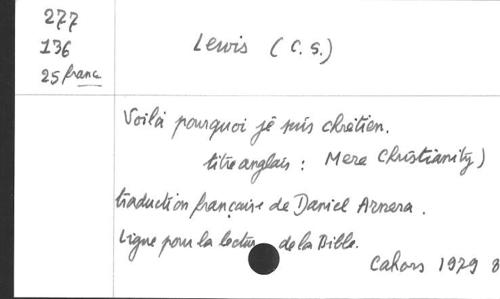 277
136
25 franc
Lewis (C. S.)
Voilà pourquoi je suis chrétien.
titre anglais : Mere Christianity)
traduction française de Daniel Arnera.
Ligue pour la lecture de la Bible.
Cahors 1979 8